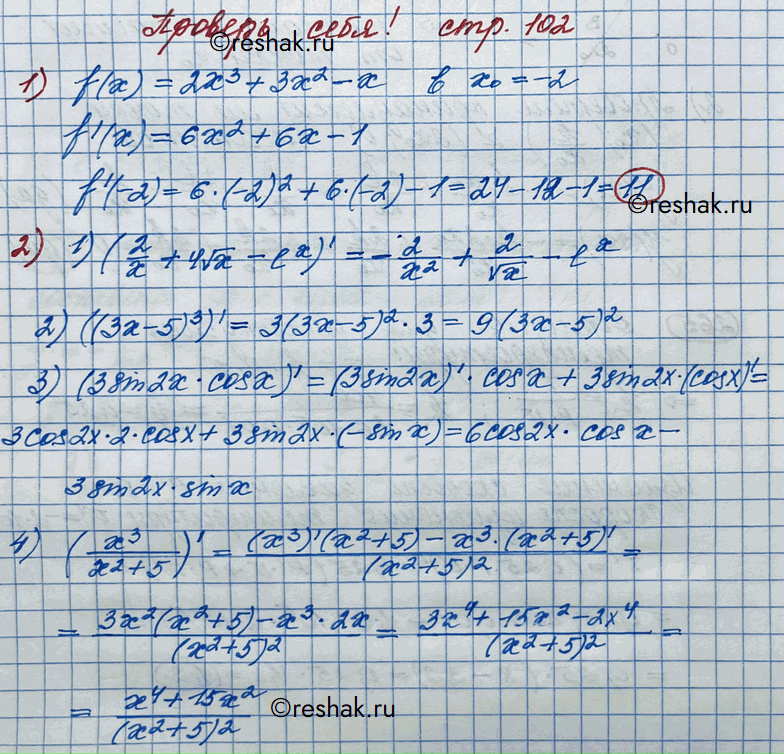 Проверь себя! стр. 102
©reshak.ru
1) f(x) = 2x³ + 3x² − x в x₀ = −2
f'(x) = 6x² + 6x − 1
f'(−2) = 6·(−2)² + 6·(−2) − 1 = 24 − 12 − 1 = 11
©reshak.ru
2) 1) (2/x + 4√x − e^x)' = −2/x² + 2/√x − e^x
2) ((3x−5)³)' = 3(3x−5)²·3 = 9(3x−5)²
3) (3sin2x·cosx)' = (3sin2x)'·cosx + 3sin2x·(cosx)' =
3cos2x·2·cosx + 3sin2x·(−sinx) = 6cos2x·cosx −
3sin2x·sinx
4) (x³/(x²+5))' = ((x³)'(x²+5) − x³·(x²+5)')/(x²+5)² =
= (3x²(x²+5) − x³·2x)/(x²+5)² = (3x⁴ + 15x² − 2x⁴)/(x²+5)² =
= (x⁴ + 15x²)/(x²+5)²
©reshak.ru